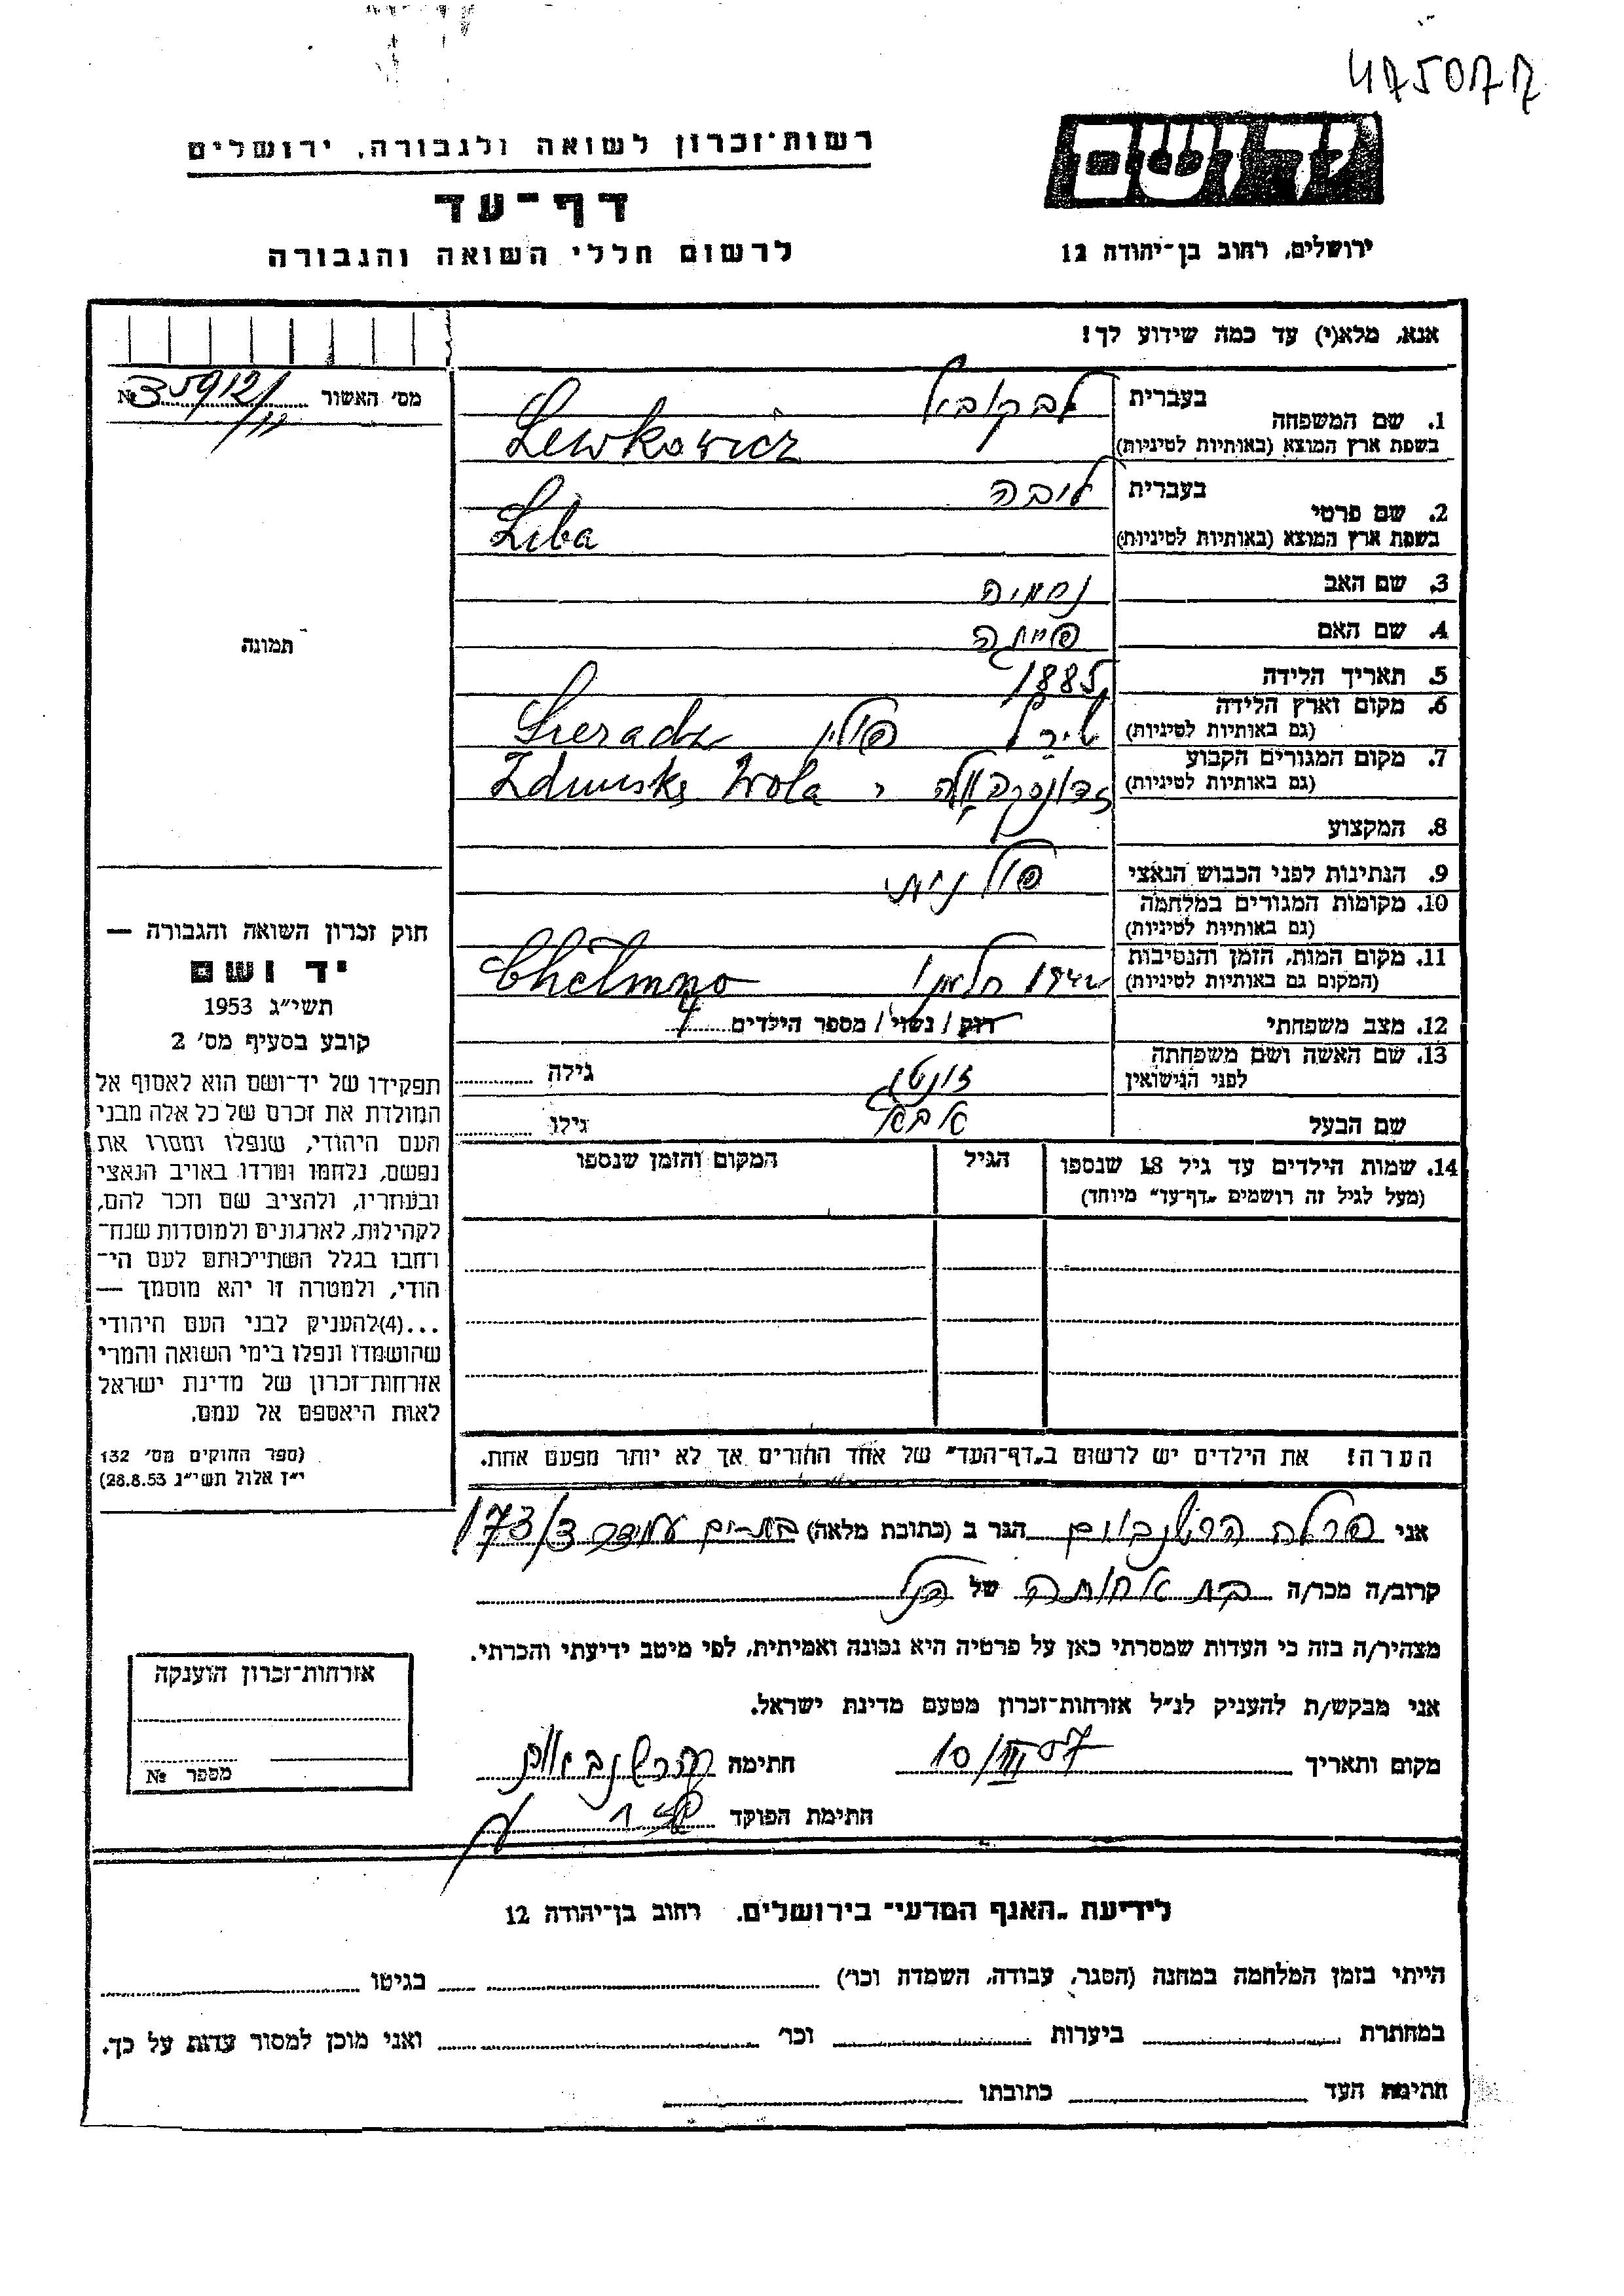 475077
רשות־זכרון לשואה ולגבורה, ירושלים
דף־עד
לרשום חללי השואה והגבורה
ידושם
ירושלים, רחוב בן־יהודה 12
אנא, מלא(י) עד כמה שידוע לך!
מס' האשור № 35912/
תמונה
חוק זכרון השואה והגבורה —
יד ושם
תשי״ג 1953
קובע בסעיף מס' 2
תפקידו של יד־ושם הוא לאסוף אל
המולדת את זכרם של כל אלה מבני
העם היהודי, שנפלו ומסרו את
נפשם, נלחמו ומרדו באויב הנאצי
ובעוזריו, ולהציב שם וזכר להם,
לקהילות, לארגונים ולמוסדות שנח־
רבו בגלל השתייכותם לעם הי־
הודי, ולמטרה זו יהא מוסמך —
...(4)להעניק לבני העם היהודי
שהושמדו ונפלו בימי השואה והמרי
אזרחות־זכרון של מדינת ישראל
לאות היאספם אל עמם.
(ספר החוקים מס' 132
י״ז אלול תשי״ג 28.8.53)
1. שם המשפחה בעברית לבקוביץ
בשפת ארץ המוצא (באותיות לטיניות) Lewkowicz
2. שם פרטי בעברית ליבה
בשפת ארץ המוצא (באותיות לטיניות) Liba
3. שם האב נחמיה
4. שם האם
5. תאריך הלידה 1885
6. מקום וארץ הלידה (גם באותיות לטיניות) פולין Sieradz
7. מקום המגורים הקבוע (גם באותיות לטיניות) זדונסקה וולה Zdunska Wola
8. המקצוע
9. הנתינות לפני הכבוש הנאצי פולנית
10. מקומות המגורים במלחמה (גם באותיות לטיניות)
11. מקום המות, הזמן והנסיבות (המקום גם באותיות לטיניות) 1942 חלמנו Chełmno
12. מצב משפחתי רוק / נשוי / מספר הילדים 4
13. שם האשה ושם משפחתה לפני הנישואין זונטג גילה
שם הבעל אבא גילו
14. שמות הילדים עד גיל 18 שנספו הגיל המקום והזמן שנספו
(מעל לגיל זה רושמים „דף־עד״ מיוחד)
הערה! את הילדים יש לרשום ב„דף־העד״ של אחד ההורים אך לא יותר מפעם אחת.
אני פרלה הרשנבוים הגר ב (כתובת מלאה) עמידר 173/3
קרוב/ה מכר/ה בת אחותה של הנ״ל
מצהיר/ה בזה כי העדות שמסרתי כאן על פרטיה היא נכונה ואמיתית, לפי מיטב ידיעתי והכרתי.
אני מבקש/ת להעניק לנ״ל אזרחות־זכרון מטעם מדינת ישראל.
מקום ותאריך 10/III 57 חתימה הרשנבוים
חתימת הפוקד
אזרחות־זכרון הוענקה
מספר №
לידיעת „האגף המדעי״ בירושלים. רחוב בן־יהודה 12
הייתי בזמן המלחמה במחנה (הסגר, עבודה, השמדה וכו') בגיטו
במחתרת ביערות וכו' ואני מוכן למסור עדות על כך.
חתימת העד כתובתו